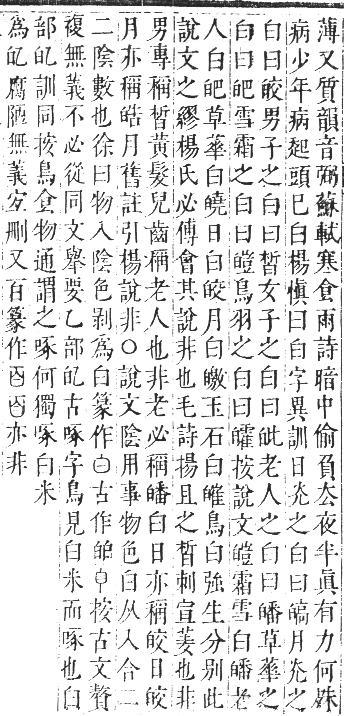 薄又質韻音弼蘇軾寒食雨詩暗中偷負去夜半眞有力何殊
病少年病起頭已白楊愼曰白字異訓日炎之白曰皜月炎之
白曰皎男子之白曰晳女子之白曰皉老人之白曰皤草華之
白曰皅雪霜之白曰皚鳥羽之白曰皬按說文皚霜雪白皤老
人白皅草華白曉日白皎月白皦玉石白皠鳥白強生分別此
說文之繆楊氏必傅會其說非也毛詩揚且之晳刺宣姜也非
男專稱晳黃髮兒齒稱老人也非老必稱皤白日亦稱皎日皎
月亦稱皓月舊註引楊說非○說文陰用事物色白从入合二
二陰數也徐曰物入陰色剝爲白篆作白古作皕㿟按古文贅
複無義不必從同文舉要乙部皀古啄字鳥見白米而啄也白
部皀訓同按鳥食物通謂之啄何獨啄白米
爲皀腐陋無義宐刪又百篆作百亦非